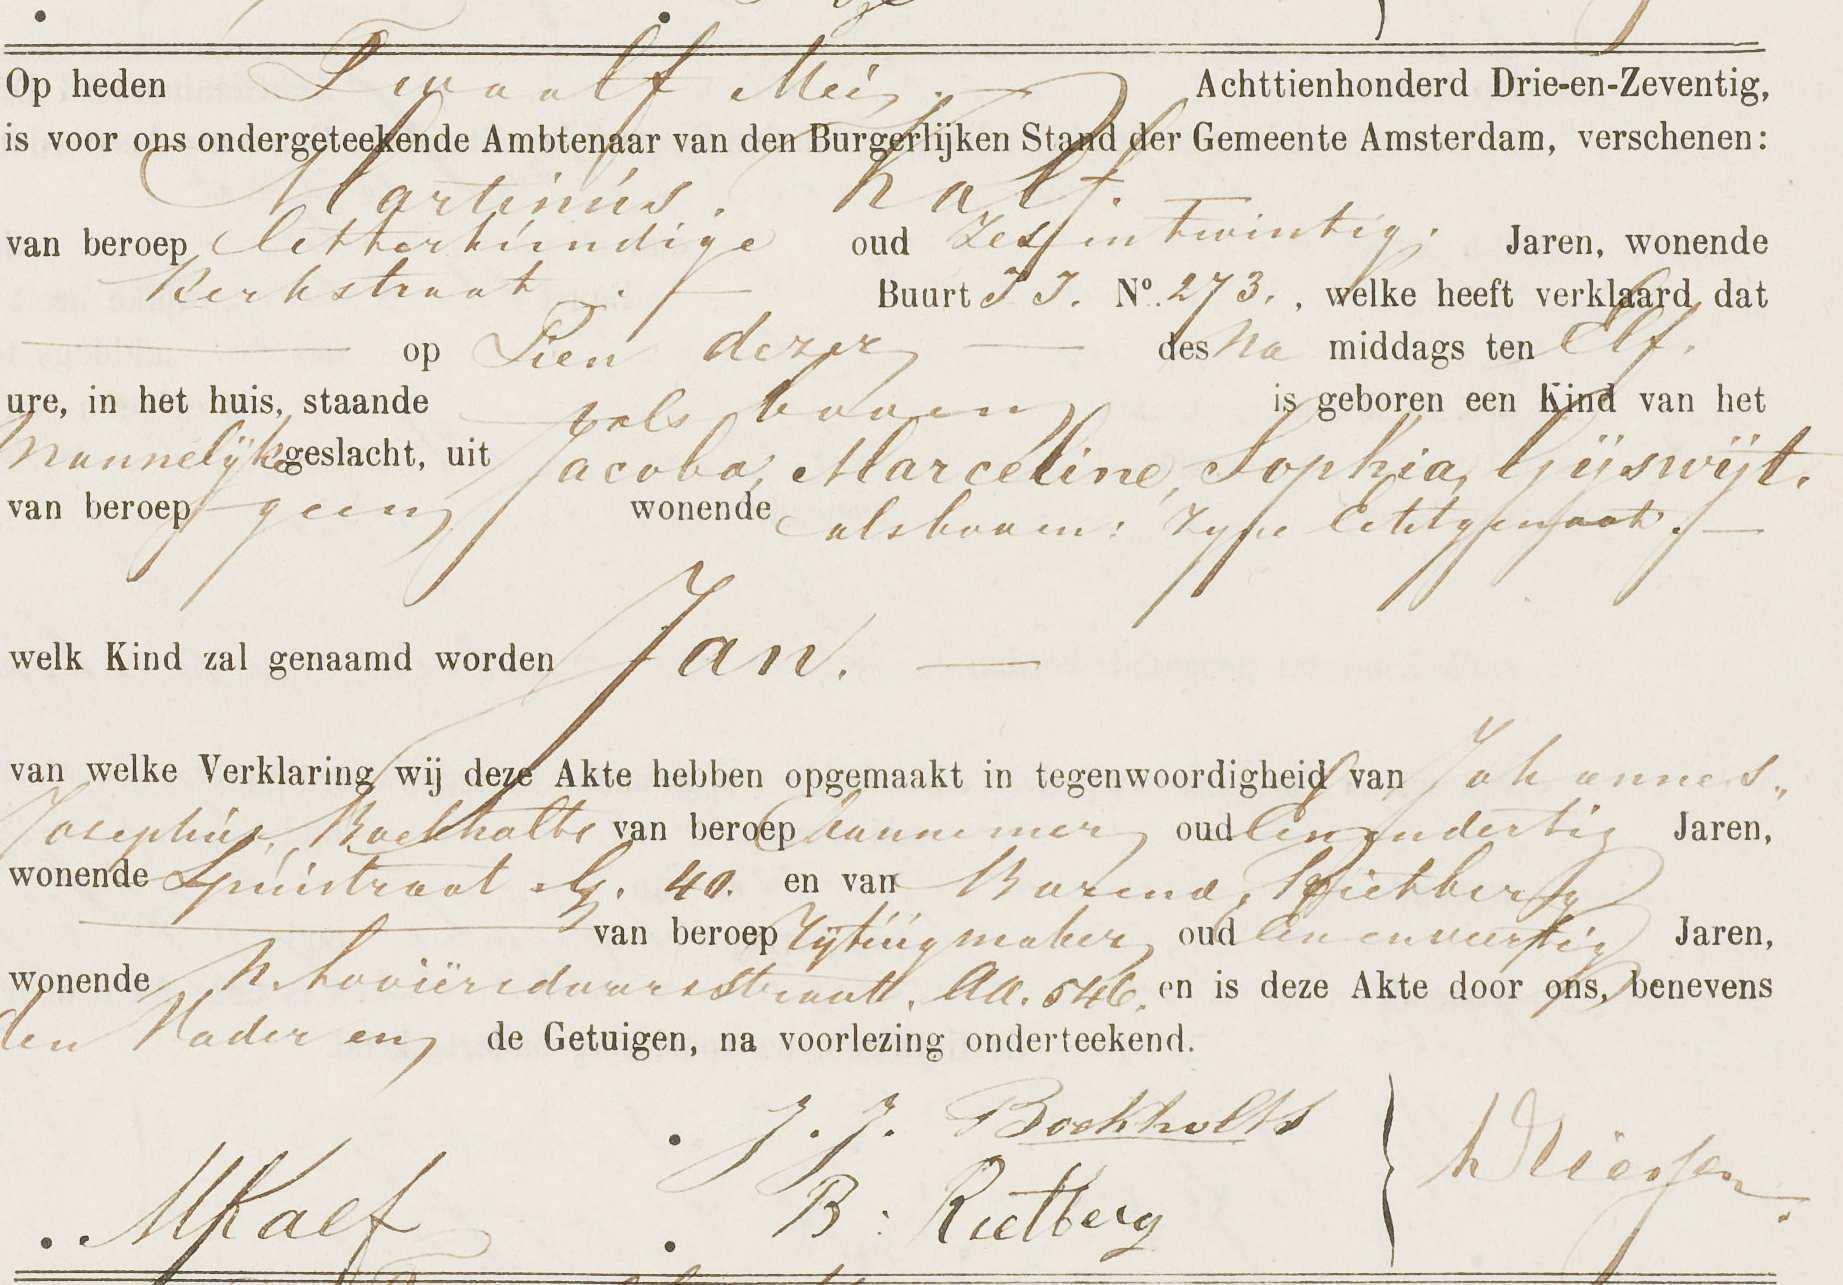 Op heden Twaalf Mei Achttienhonderd Drie-en-Zeventig,
is voor ons ondergeteekende Ambtenaar van den Burgerlijken Stand der Gemeente Amsterdam, verschenen:
Martinus. Kalf.
van beroep letterkundige oud Zes en twintig. Jaren, wonende
Kerkstraat. Buurt J J. No. 273., welke heeft verklaard dat
op Tien dezer des Na middags ten Elf.
ure, in het huis, staande als boven is geboren een Kind van het
Mannelijk geslacht, uit Jacoba, Marceline, Sophia, Gijswijt.
van beroep geen wonende alsboven: zijne Echtgenoot.
welk Kind zal genaamd worden Jan.
van welke Verklaring wij deze Akte hebben opgemaakt in tegenwoordigheid van Johannes
Josephus, Bockholts van beroep oud Een en dertig Jaren,
wonende Spuistraat G. 40. en van Barend, Rietberg
van beroep oud Een en veertig Jaren,
wonende AA. 546. en is deze Akte door ons, benevens
den Vader en de Getuigen, na voorlezing onderteekend.
J. J. Bockholts
MKalf
B. Rietberg